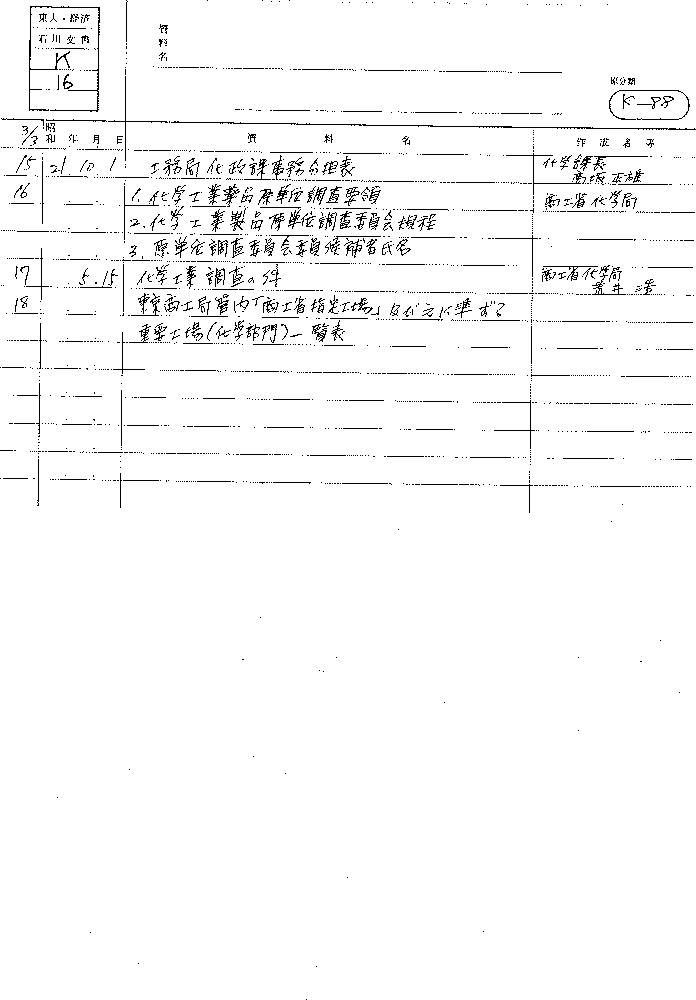 東大・経済
石川文書
K
16
資料名
原分類
K-88
3/3 昭和 年 月 日 資料名 作成者名等
15 21 10 1 工務局化政課事務分担表 化学課長
高坂正雄
16 1. 化学工業薬品原単位調査要領 商工省化学局
2. 化学工業製品原単位調査委員会規程
3. 原単位調査委員会委員候補者氏名
17 5.15 化学工業調査の件 商工省化学局
荒井
18 東京商工局管内「商工省指定工場」及び之に準ずる
重要工場(化学部門)一覧表